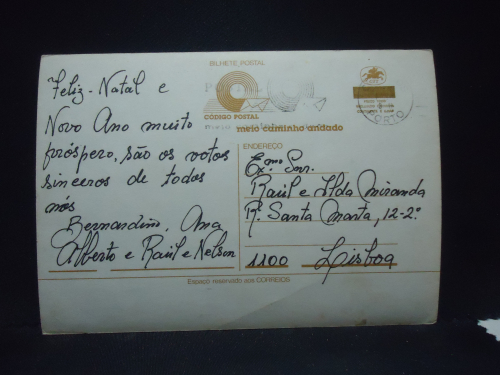 BILHETE POSTAL
CÓDIGO POSTAL
meio caminho andado
PORTO
Feliz-Natal e
Novo Ano muito
próspero, são os votos
sinceros de todos
nós
Bernardino, Ana
Alberto e Raúl e Nelson
ENDEREÇO
Exmo Snr.
Raúl e Ilda Miranda
R. Santa Marta, 12-2º
1100 Lisboa
Espaço reservado aos CORREIOS